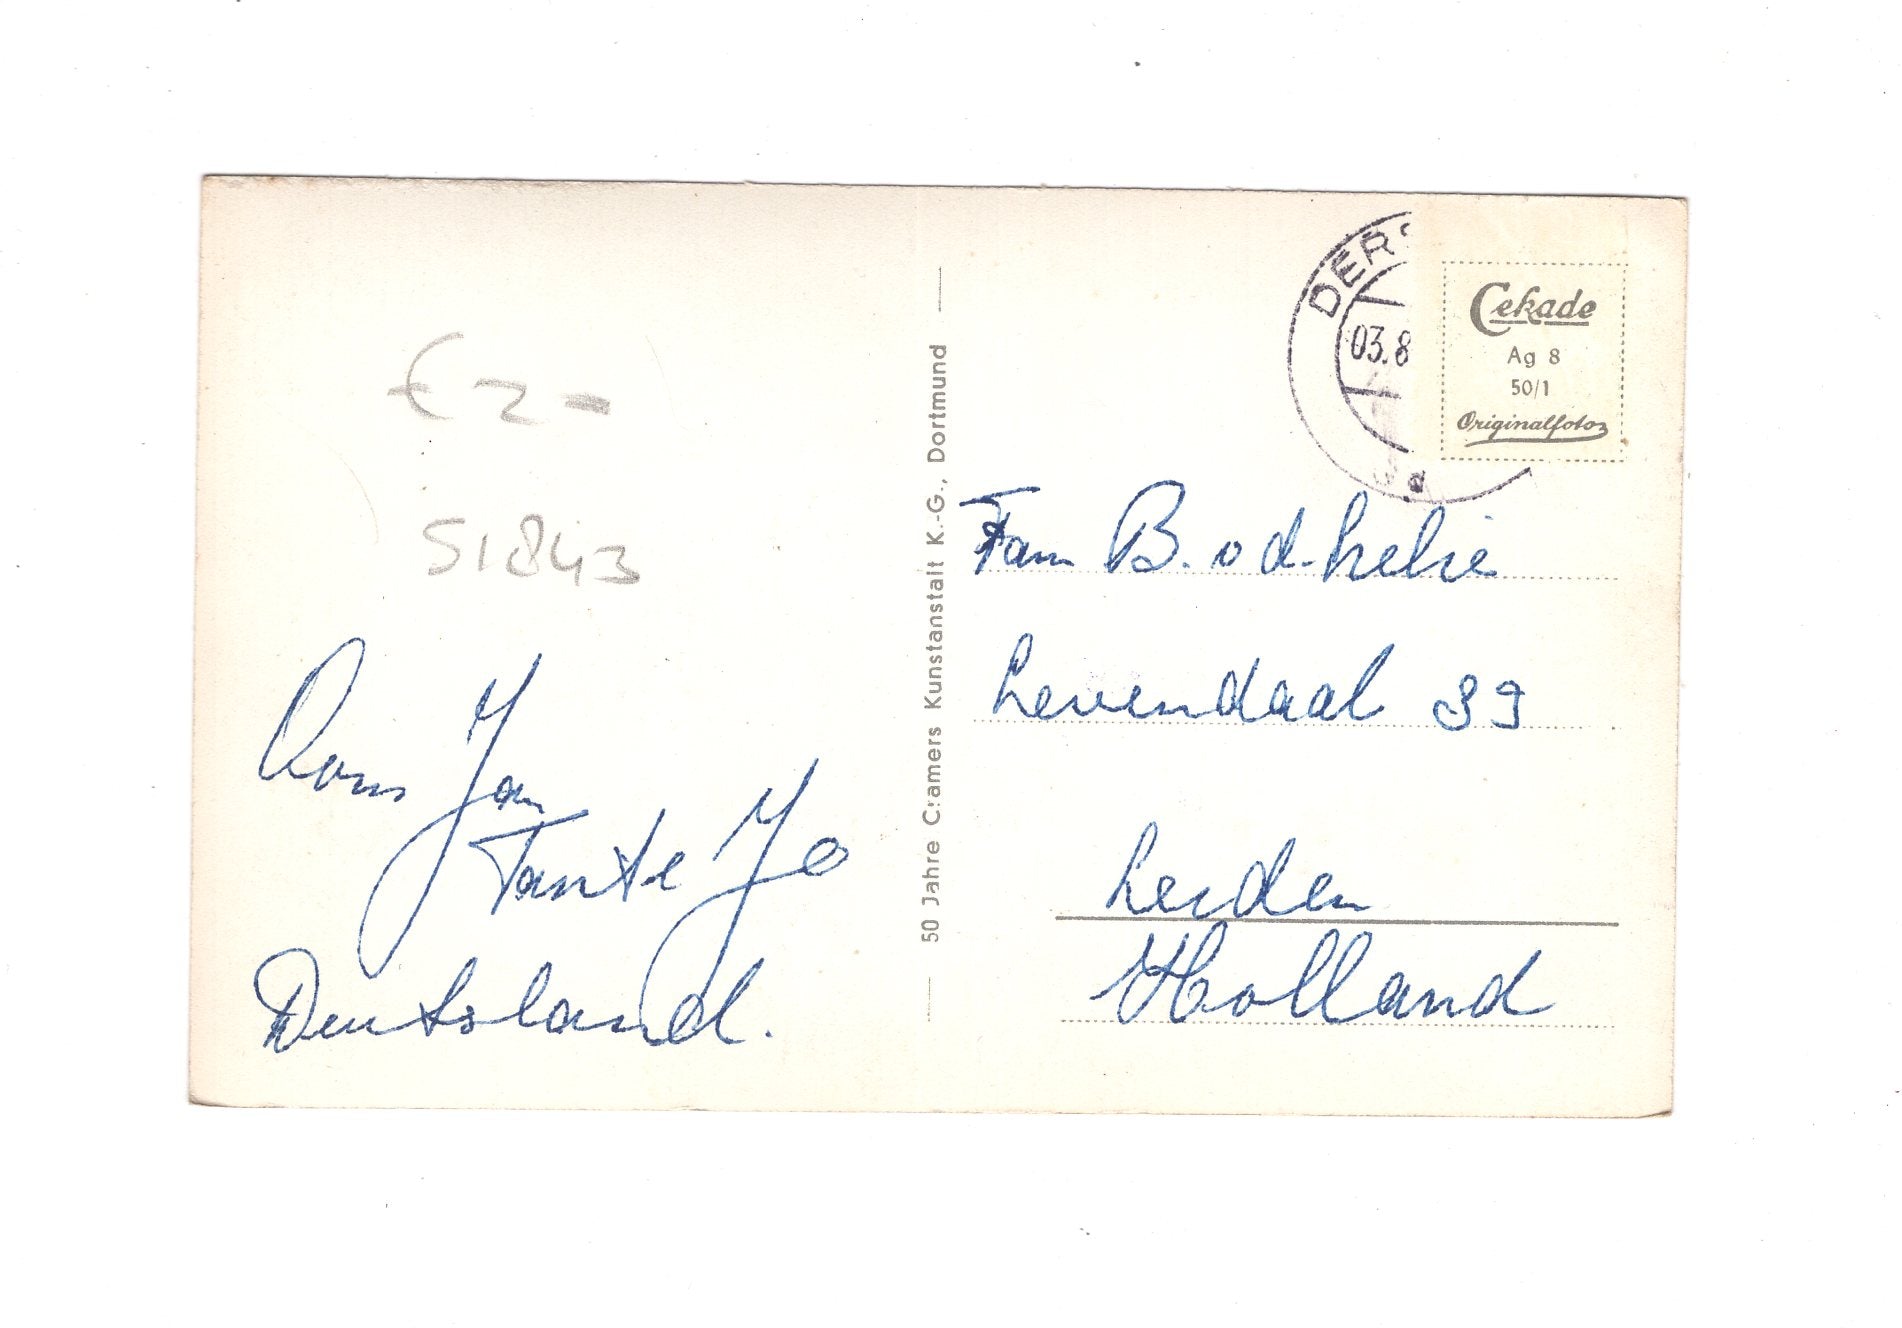 € 2 -
51843
Oom Jan
Tante Jo
Deutsland.
50 Jahre Cramers Kunstanstalt K.-G., Dortmund
DERS
03.8
d
Cekade
Ag 8
50/1
Originalfoto
Fam B. v d.
Levendaal 39
Leiden
Holland